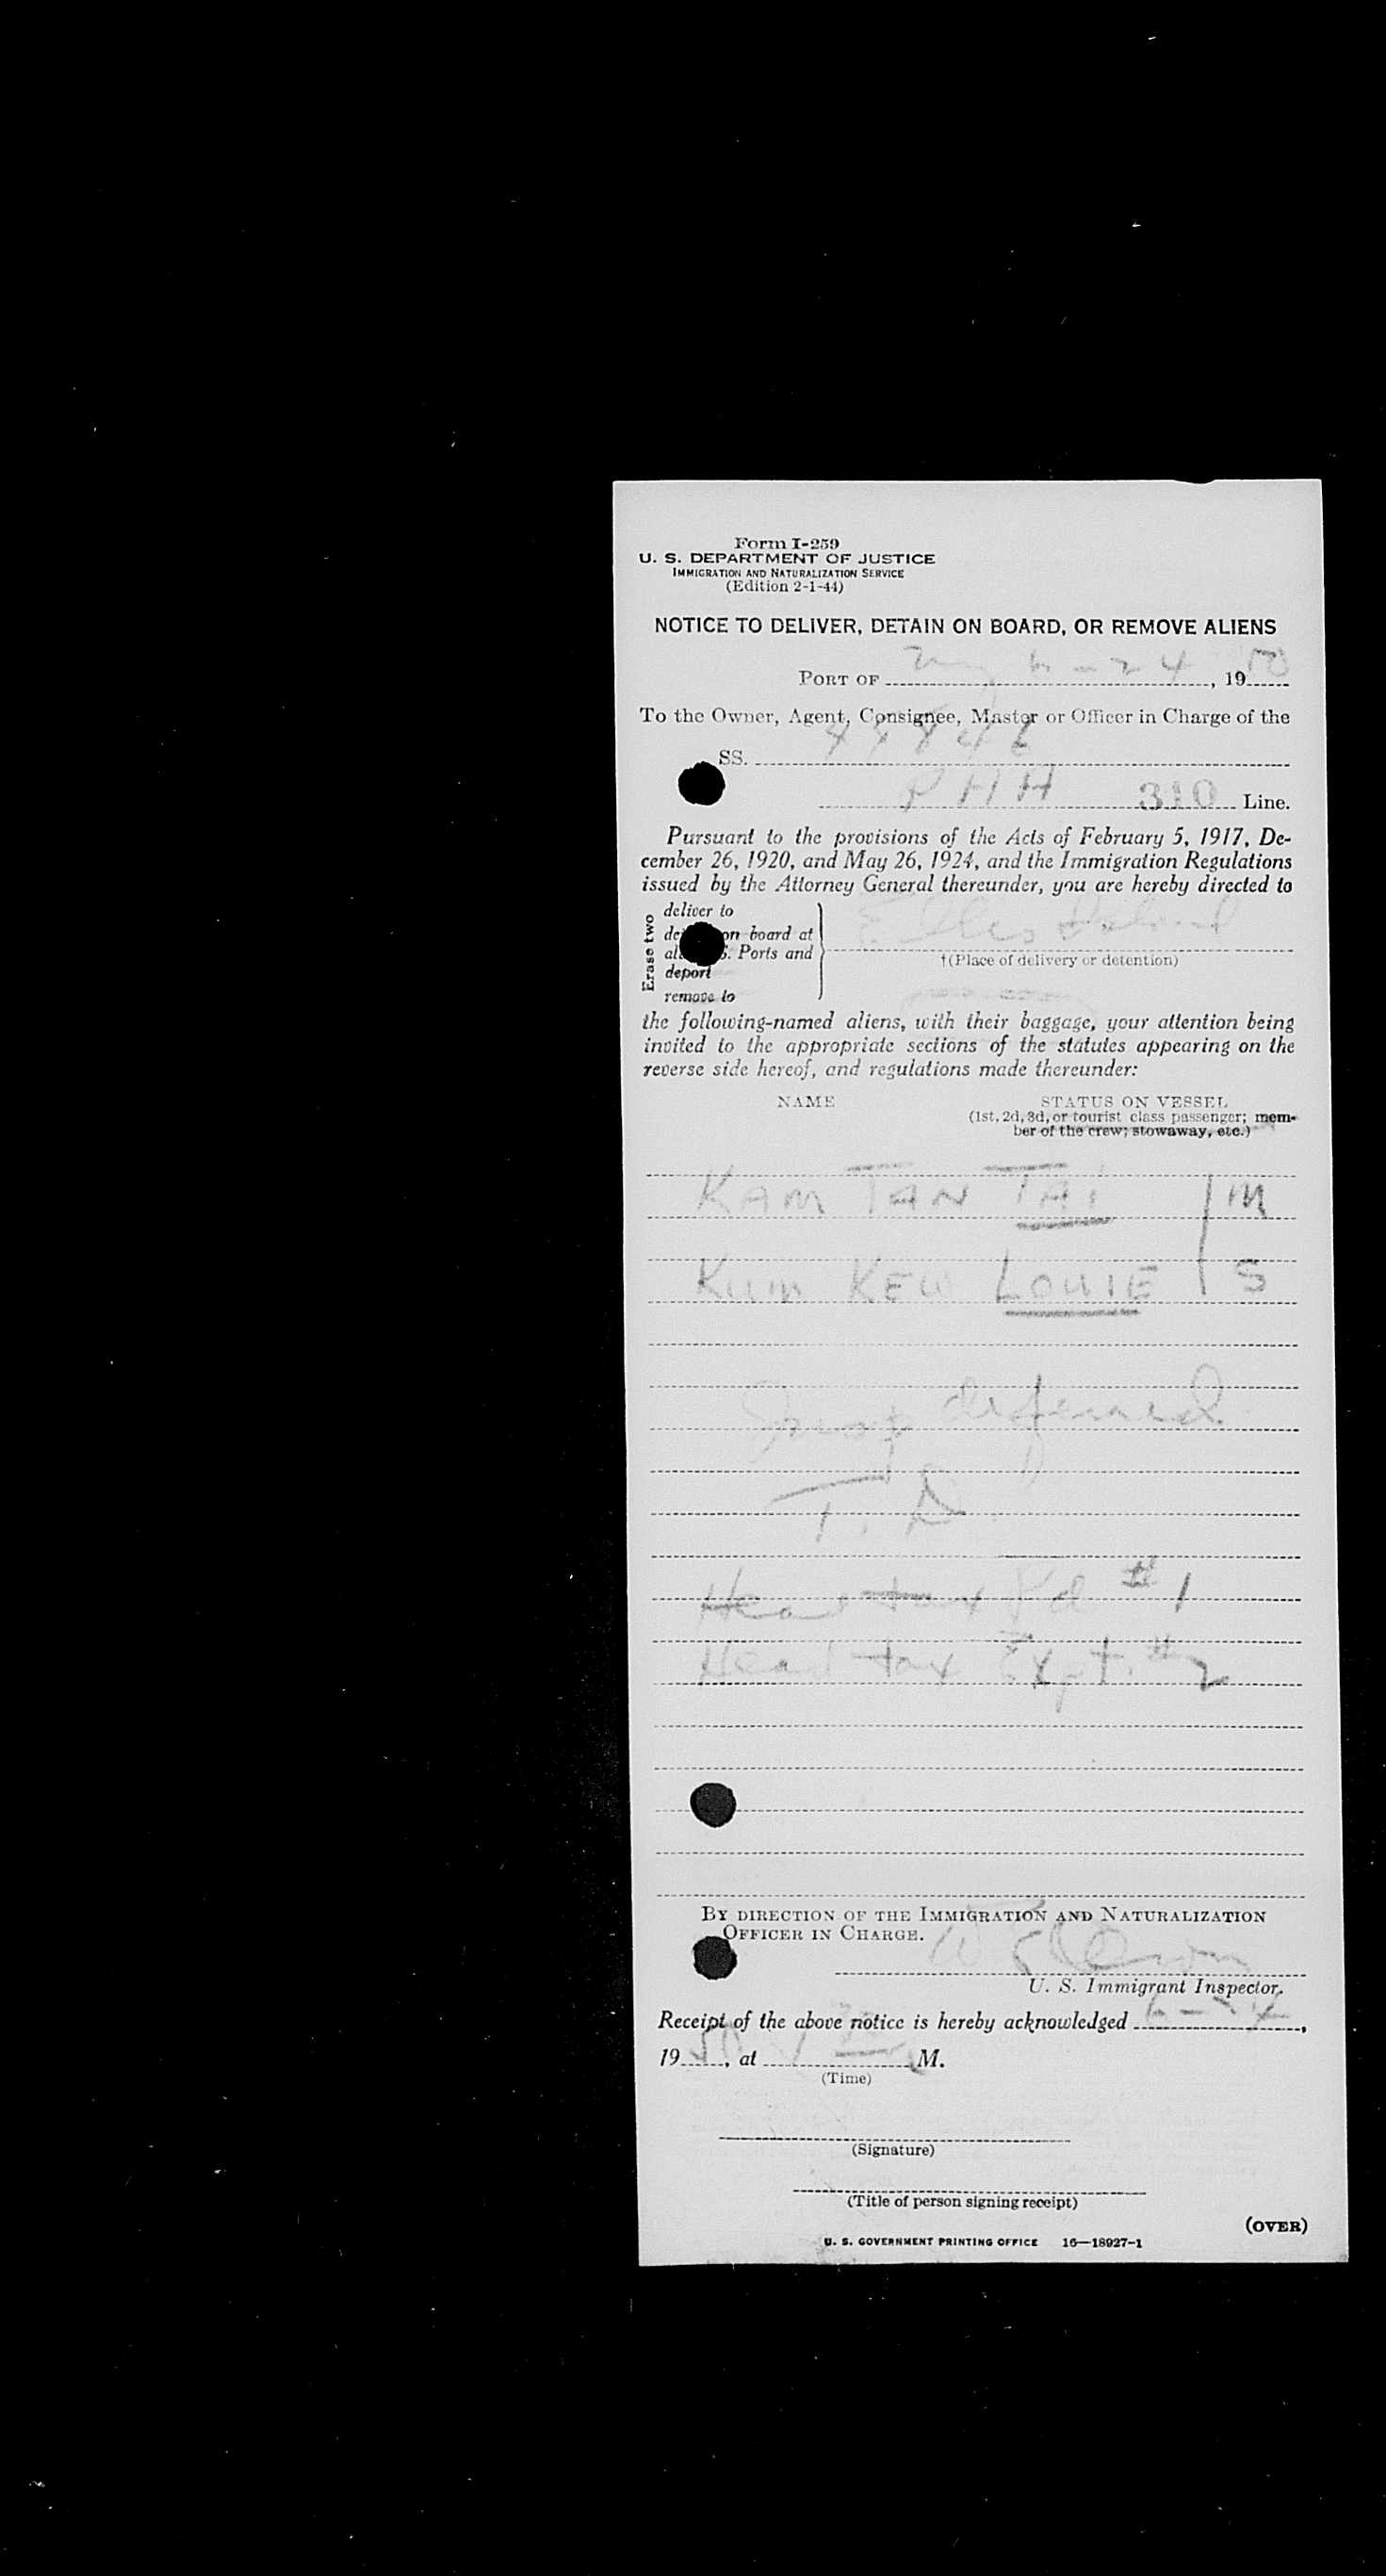 Form I-259
U. S. DEPARTMENT OF JUSTICE
IMMIGRATION AND NATURALIZATION SERVICE
(Edition 2-1-44)
NOTICE TO DELIVER, DETAIN ON BOARD, OR REMOVE ALIENS
PORT OF NY 6-24, 1950
To the Owner, Agent, Consignee, Master or Officer in Charge of the
SS.
PHH 310 Line.
Pursuant to the provisions of the Acts of February 5, 1917, De-
cember 26, 1920, and May 26, 1924, and the Immigration Regulations
issued by the Attorney General thereunder, you are hereby directed to
Erase two
deliver to
on board at
Ports and
deport
remove to
Ellis Island
†(Place of delivery or detention)
the following-named aliens, with their baggage, your attention being
invited to the appropriate sections of the statutes appearing on the
reverse side hereof, and regulations made thereunder:
NAME STATUS ON VESSEL
(1st, 2d, 3d, or tourist class passenger; mem-
ber of the crew; stowaway, etc.)
KAM TAN TAI M
KUM KEW LOUIE S
deferred
T. D.
Head tax Pd #1
Head tax Expt. #2
BY DIRECTION OF THE IMMIGRATION AND NATURALIZATION
OFFICER IN CHARGE.
U. S. Immigrant Inspector.
Receipt of the above notice is hereby acknowledged 6-24,
1950, at M.
(Time)
(Signature)
(Title of person signing receipt)
(OVER)
U. S. GOVERNMENT PRINTING OFFICE 16—18927-1